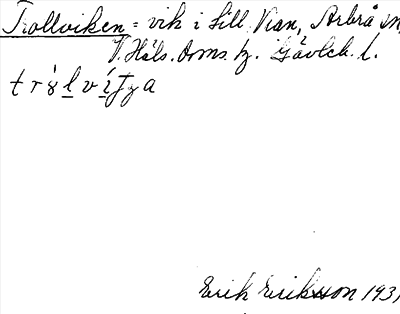 Trollviken = vik i Lill Vian, Arbrå sn,
V. Häls. Doms. hg. Gävleb. l.
Erik Eriksson 1931